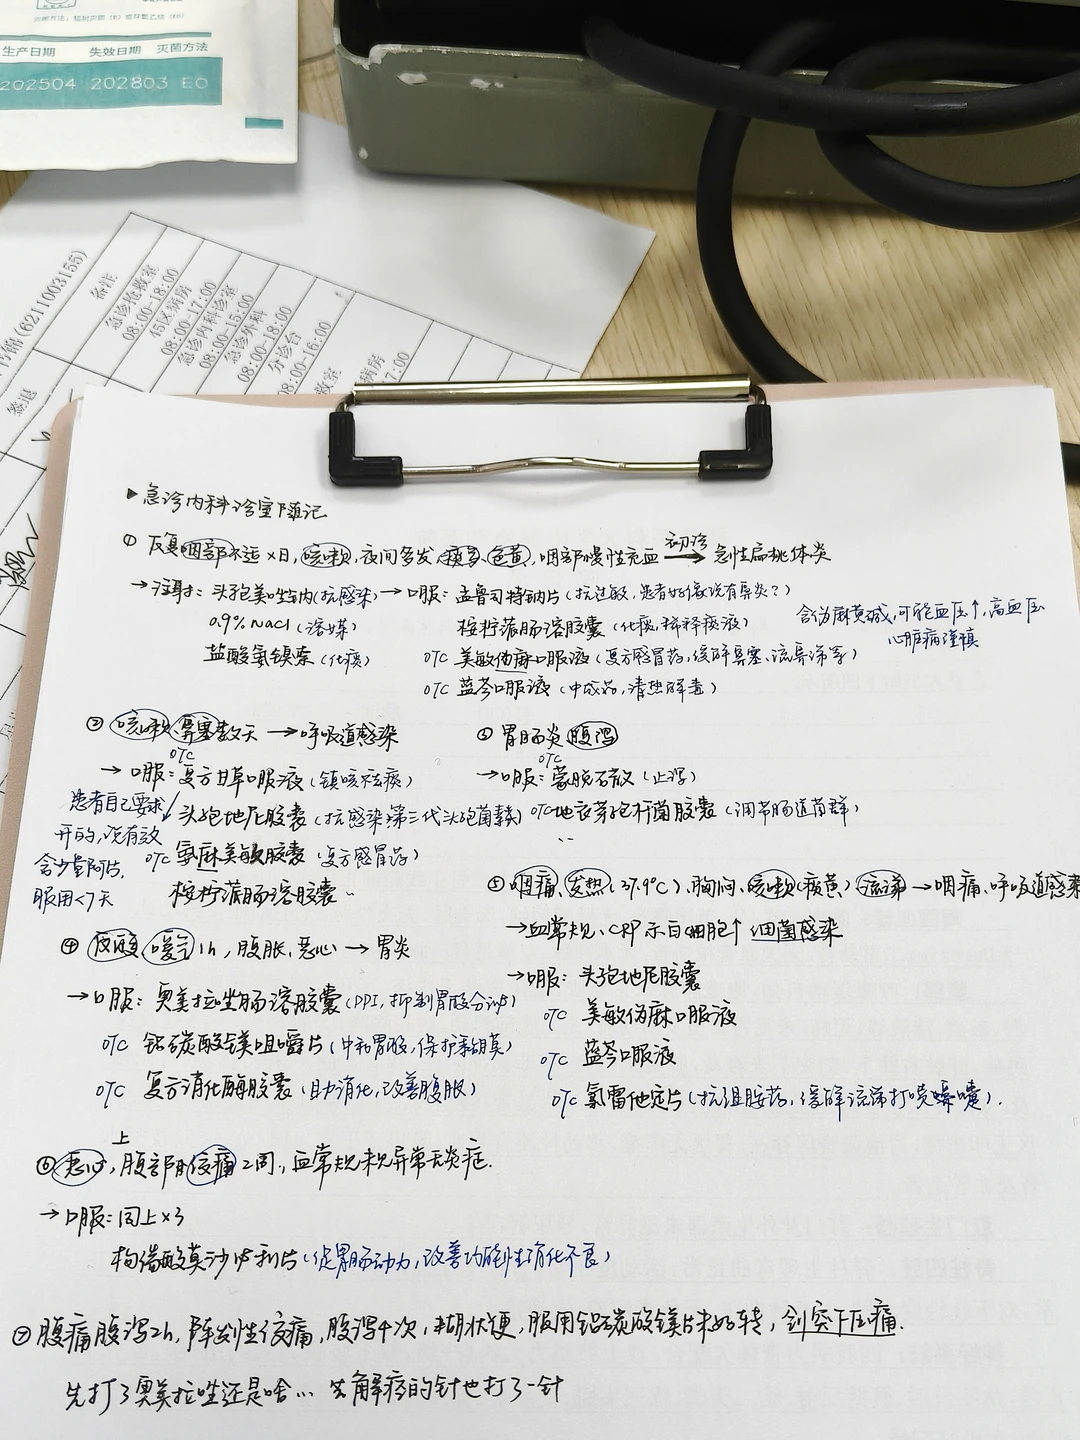 生产日期 失效日期 灭菌方法
202504 202803 EO
(6211003155)
备注
签退
急诊抢救室
08:00-18:00
45区病房
08:00-17:00
急诊内科诊室
08:00-15:00
急诊外科
08:00-18:00
分诊台
08:00-16:00
▶急诊内科诊室下随记
① 反复咽部不适×日,咳嗽,夜间多发,痰多,色黄,咽部慢性充血 初诊→ 急性扁桃体炎
→注射: 头孢美唑钠(抗感染)→口服: 孟鲁司特钠片(抗过敏,患者好像没有鼻炎?)
0.9% NaCl (溶媒) 桉柠蒎肠溶胶囊(化痰,稀释痰液)
含伪麻黄碱,可能血压↑,高血压
心脏病谨慎
盐酸氨溴索(化痰) OTC 美敏伪麻口服液(复方感冒药,缓解鼻塞、流鼻涕等)
OTC 蓝芩口服液(中成药,清热解毒)
② 咳嗽,鼻塞数天 → 呼吸道感染
→口服: OTC 复方甘草口服液(镇咳祛痰)
患者自己要求
开的,没有效
头孢地尼胶囊(抗感染,第三代头孢菌素)
含少量阿片,
服用<7天
OTC 氨麻美敏胶囊(复方感冒药)
桉柠蒎肠溶胶囊
③ 胃肠炎 腹泻
→口服: OTC 蒙脱石散(止泻)
OTC 地衣芽孢杆菌胶囊(调节肠道菌群)
④ 反酸,嗳气1h,腹胀,恶心 → 胃炎
→口服: 奥美拉唑肠溶胶囊(PPI,抑制胃酸分泌)
OTC 铝碳酸镁咀嚼片(中和胃酸,保护黏膜)
OTC 复方消化酶胶囊(助消化,改善腹胀)
⑤ 咽痛、发热(37.9°C)、胸闷、咳嗽(痰黄)、流涕 → 咽痛、呼吸道感染
→血常规、CRP示白细胞↑ 细菌感染
→口服: 头孢地尼胶囊
OTC 美敏伪麻口服液
OTC 蓝芩口服液
OTC 氯雷他定片(抗组胺药,缓解流涕打喷嚏).
⑥ 恶心,上腹部阵绞痛2周,血常规未见异常无炎症.
→口服: 同上×3
枸橼酸莫沙必利片(促胃肠动力,改善功能性消化不良)
⑦ 腹痛腹泻2h,阵发性绞痛,腹泻4次,糊状便,服用铝碳酸镁片未好转,剑突下压痛.
先打了奥美拉唑还是啥… 然解痉的针也打了一针